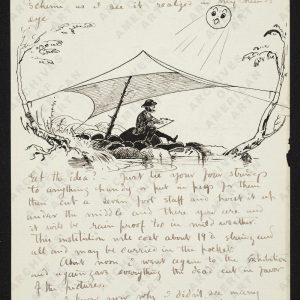 scheme as I see it realized in my mind's
eye
Get the idea? Just tie your four strings
to anything handy or put in pegs for them
then cut a seven foot staff and hoist it up
under the middle and there you are and
it will be rain proof too in mild weather.
This institution will cost about 19/- string and
all and may be carried in the pocket.
About noon I went again to the exhibition
and again gave everything the dead cut in favor
of the pictures.
I know now why I didn't see many